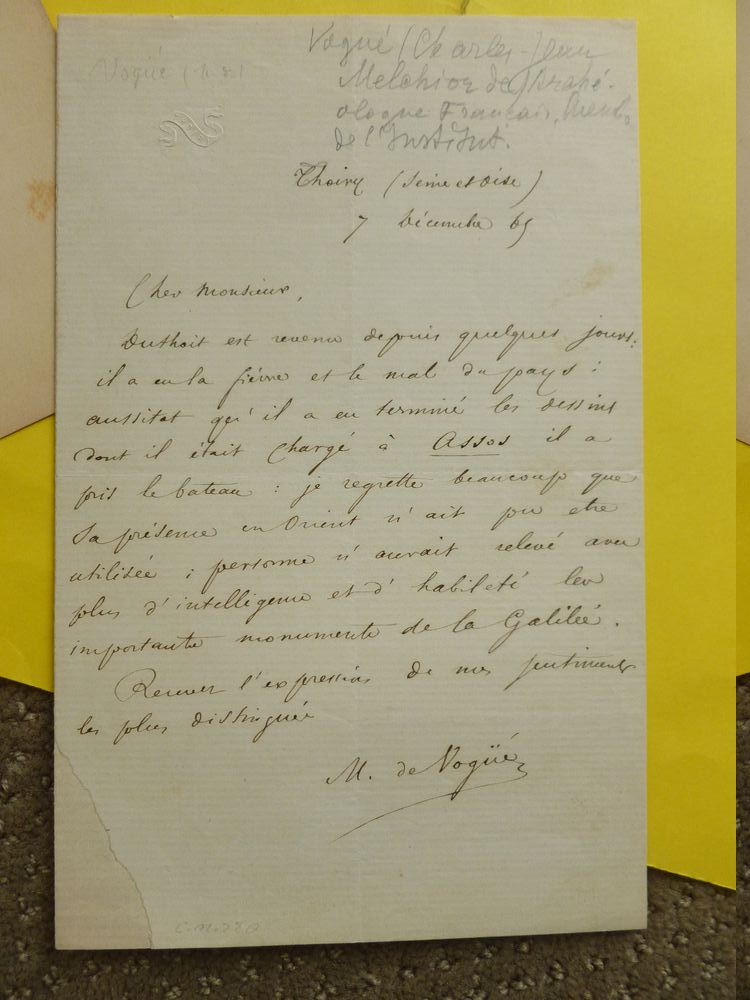 Vogüé (M. de)
Vogüé (Charles-Jean
Melchior de) Arché-
ologue Français, Memb.
de l'Institut.
Thoiry (Seine et Oise)
7 décembre 65
Cher Monsieur,
Duthoit est revenu depuis quelques jours :
il a eu la fièvre et le mal du pays :
aussitot qu'il a eu terminé les dessins
dont il était chargé à Assos il a
pris le bateau : je regrette beaucoup que
sa présence en Orient n'ait pu etre
utilisée ; personne n'aurait relevé avec
plus d'intelligence et d'habileté les
importants monuments de la Galilée.
Recevez l'expression de mes sentiments
les plus distingués
M. de Vogüé